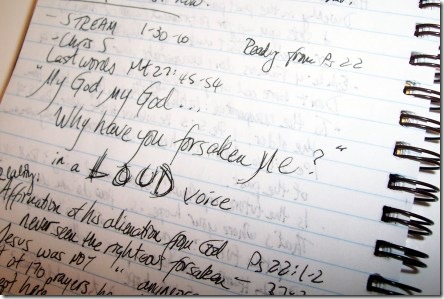 - STREAM 1-30-10 Ready from Ps 22
- Chris S
Last words Mt 27:45-54
"My God, my God...
Why have you forsaken Me?"
in a LOUD voice
Reality:
Affirmation of his alienation from God Ps 22:1-2
never seen the righteous forsaken -
Jesus was NOT "
of 170 prayers